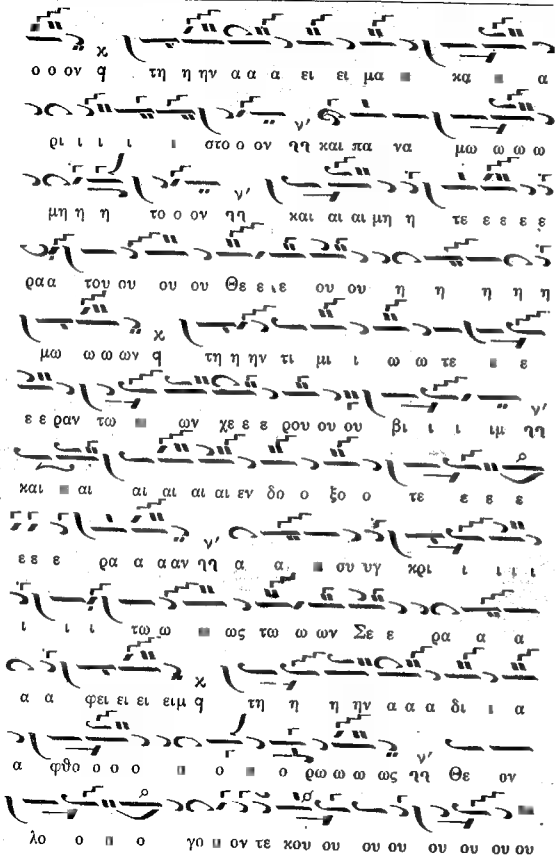 ο ο ον τη η ην α α α ει ει μα κα α
ρι ι ι ι ι στο ο ον και πα να μω ω ω ω
μη η η το ο ον και αι αι μη η τε ε ε ε ε
ρα α του ου ου ου Θε ε ε ου ου η η η η η
μω ω ω ων τη η ην τι μι ι ω ω τε ε
ε ε ραν τω ων χε ε ε ρου ου ου βι ι ι ιμ
και αι αι αι αι αι εν δο ο ξο ο τε ε ε ε
ε ε ε ρα α α αν α α συ υγ κρι ι ι ι ι
ι ι ι τω ω ως τω ω ων Σε ε ρα α α
α α φει ει ει ειμ τη η η ην α α α δι ι α
α φθο ο ο ο ο ο ρω ω ω ως Θε ον
λο ο ο γο ον τε κου ου ου ου ου ου ου ου